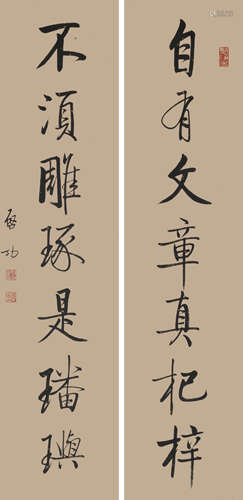 自有文章真杞梓
不须雕琢是璠玙
启功